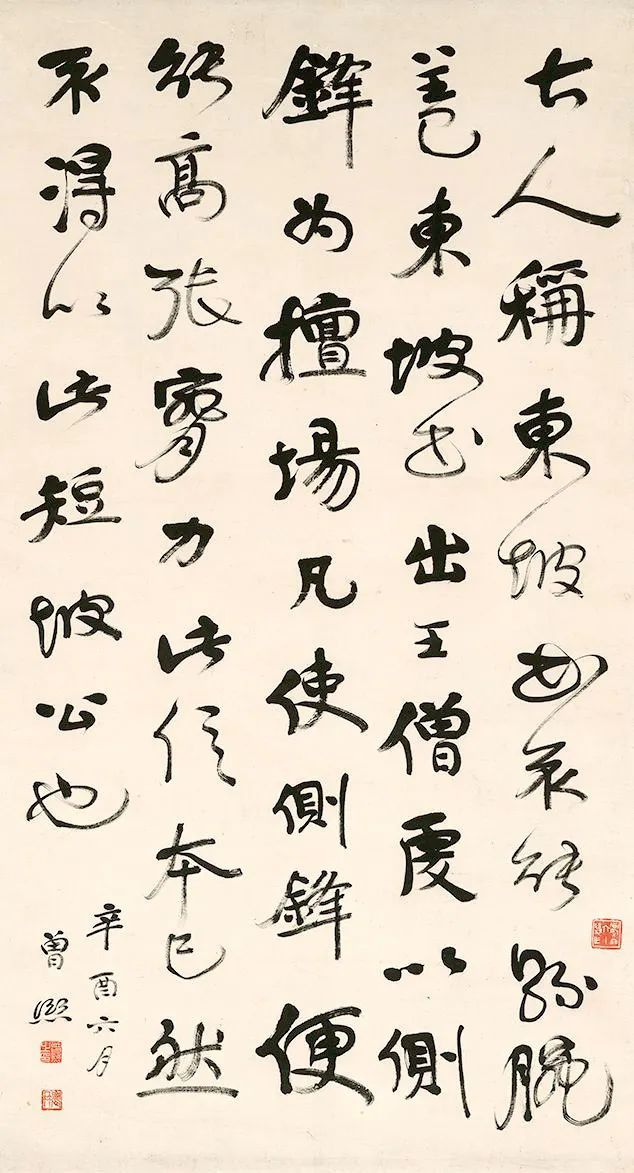 古人稱東坡書不能懸腕
蓋東坡書出王僧虔以側
鋒為擅場凡使側鋒便
能高張膂力此信本已然
不得以此短坡公也
辛酉六月
曾熙